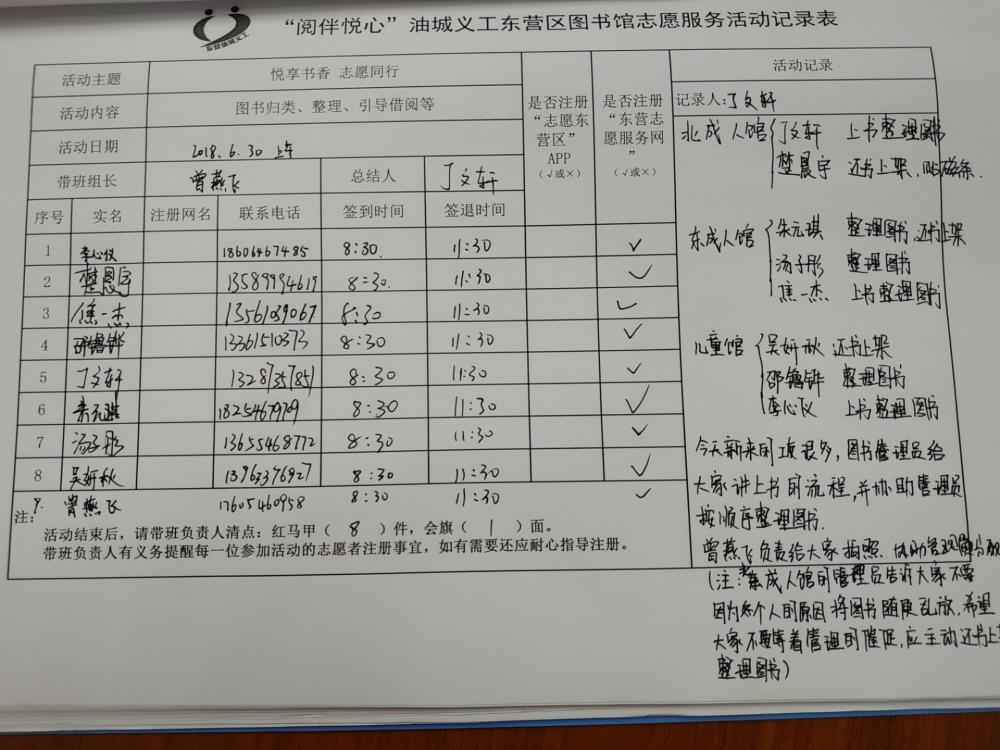 东营油城义工
“阅伴悦心”油城义工东营区图书馆志愿服务活动记录表
活动主题 悦享书香 志愿同行
活动内容 图书归类、整理、引导借阅等
活动日期 2018.6.30 上午
带班组长 曾燕飞 总结人 丁文轩
是否注册“志愿东营区”APP（√或×）
是否注册“东营志愿服务网”（√或×）
序号 实名 注册网名 联系电话 签到时间 签退时间
1 李心仪 18606467485 8:30. 11:30 ✓
2 楚晨宇 13589994619 8:30. 11:30 ✓
3 焦一杰 13561039067 8:30 11:30 ✓
4 邵镥铧 13361510373 8:30 11:30 ✓
5 丁文轩 13287357851 8:30 11:30 ✓
6 朱元琪 18254679709 8:30 11:30 ✓
7 汤子彤 13655468772 8:30 11:30 ✓
8 吴妍秋 13963376927 8:30 11:30 ✓
9. 曾燕飞 17605460958 8:30 11:30 ✓
注：
活动结束后，请带班负责人清点：红马甲（ 8 ）件，会旗（ 1 ）面。
带班负责人有义务提醒每一位参加活动的志愿者注册事宜，如有需要还应耐心指导注册。
活动记录
记录人：丁文轩
北成人馆 丁文轩 上书整理图书
楚晨宇 还书上架，贴磁条.
东成人馆 朱元琪 整理图书.还书上架
汤子彤 整理图书
焦一杰 上书整理图书
儿童馆 吴妍秋 还书上架
邵镥铧 整理图书
李心仪 上书整理图书
今天新来同项很多，图书管理员给
大家讲上书的流程，并协助管理员
按顺序整理图书.
曾燕飞负责给大家拍照.协助管理
（注：东成人馆的管理员告诉大家不要
因为个人的原因将图书随便乱放，希望
大家不要等着管理的催促，应主动还书上
整理图书）